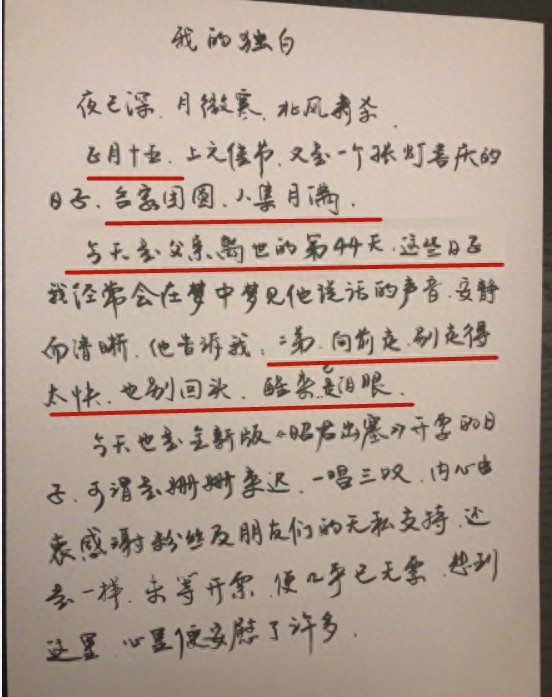 我的独白
夜已深，月微寒，北风肃杀，
正月十五，上元佳节，又是一个张灯喜庆的
日子，合家团圆，人集月满，
今天是父亲离世的第44天，这些日子
我经常会在梦中梦见他说话的声音，安静
而清晰，他告诉我：二弟，向前走，别走得
太快，也别回头，醒来已泪眼，
今天也是全新版《昭君出塞》开票的日
子，可谓是姗姗来迟，一唱三叹，内心由
衷感谢粉丝及朋友们的无私支持，还
是一样，未等开票，便几乎已无票，想到
这里，心里便安慰了许多，